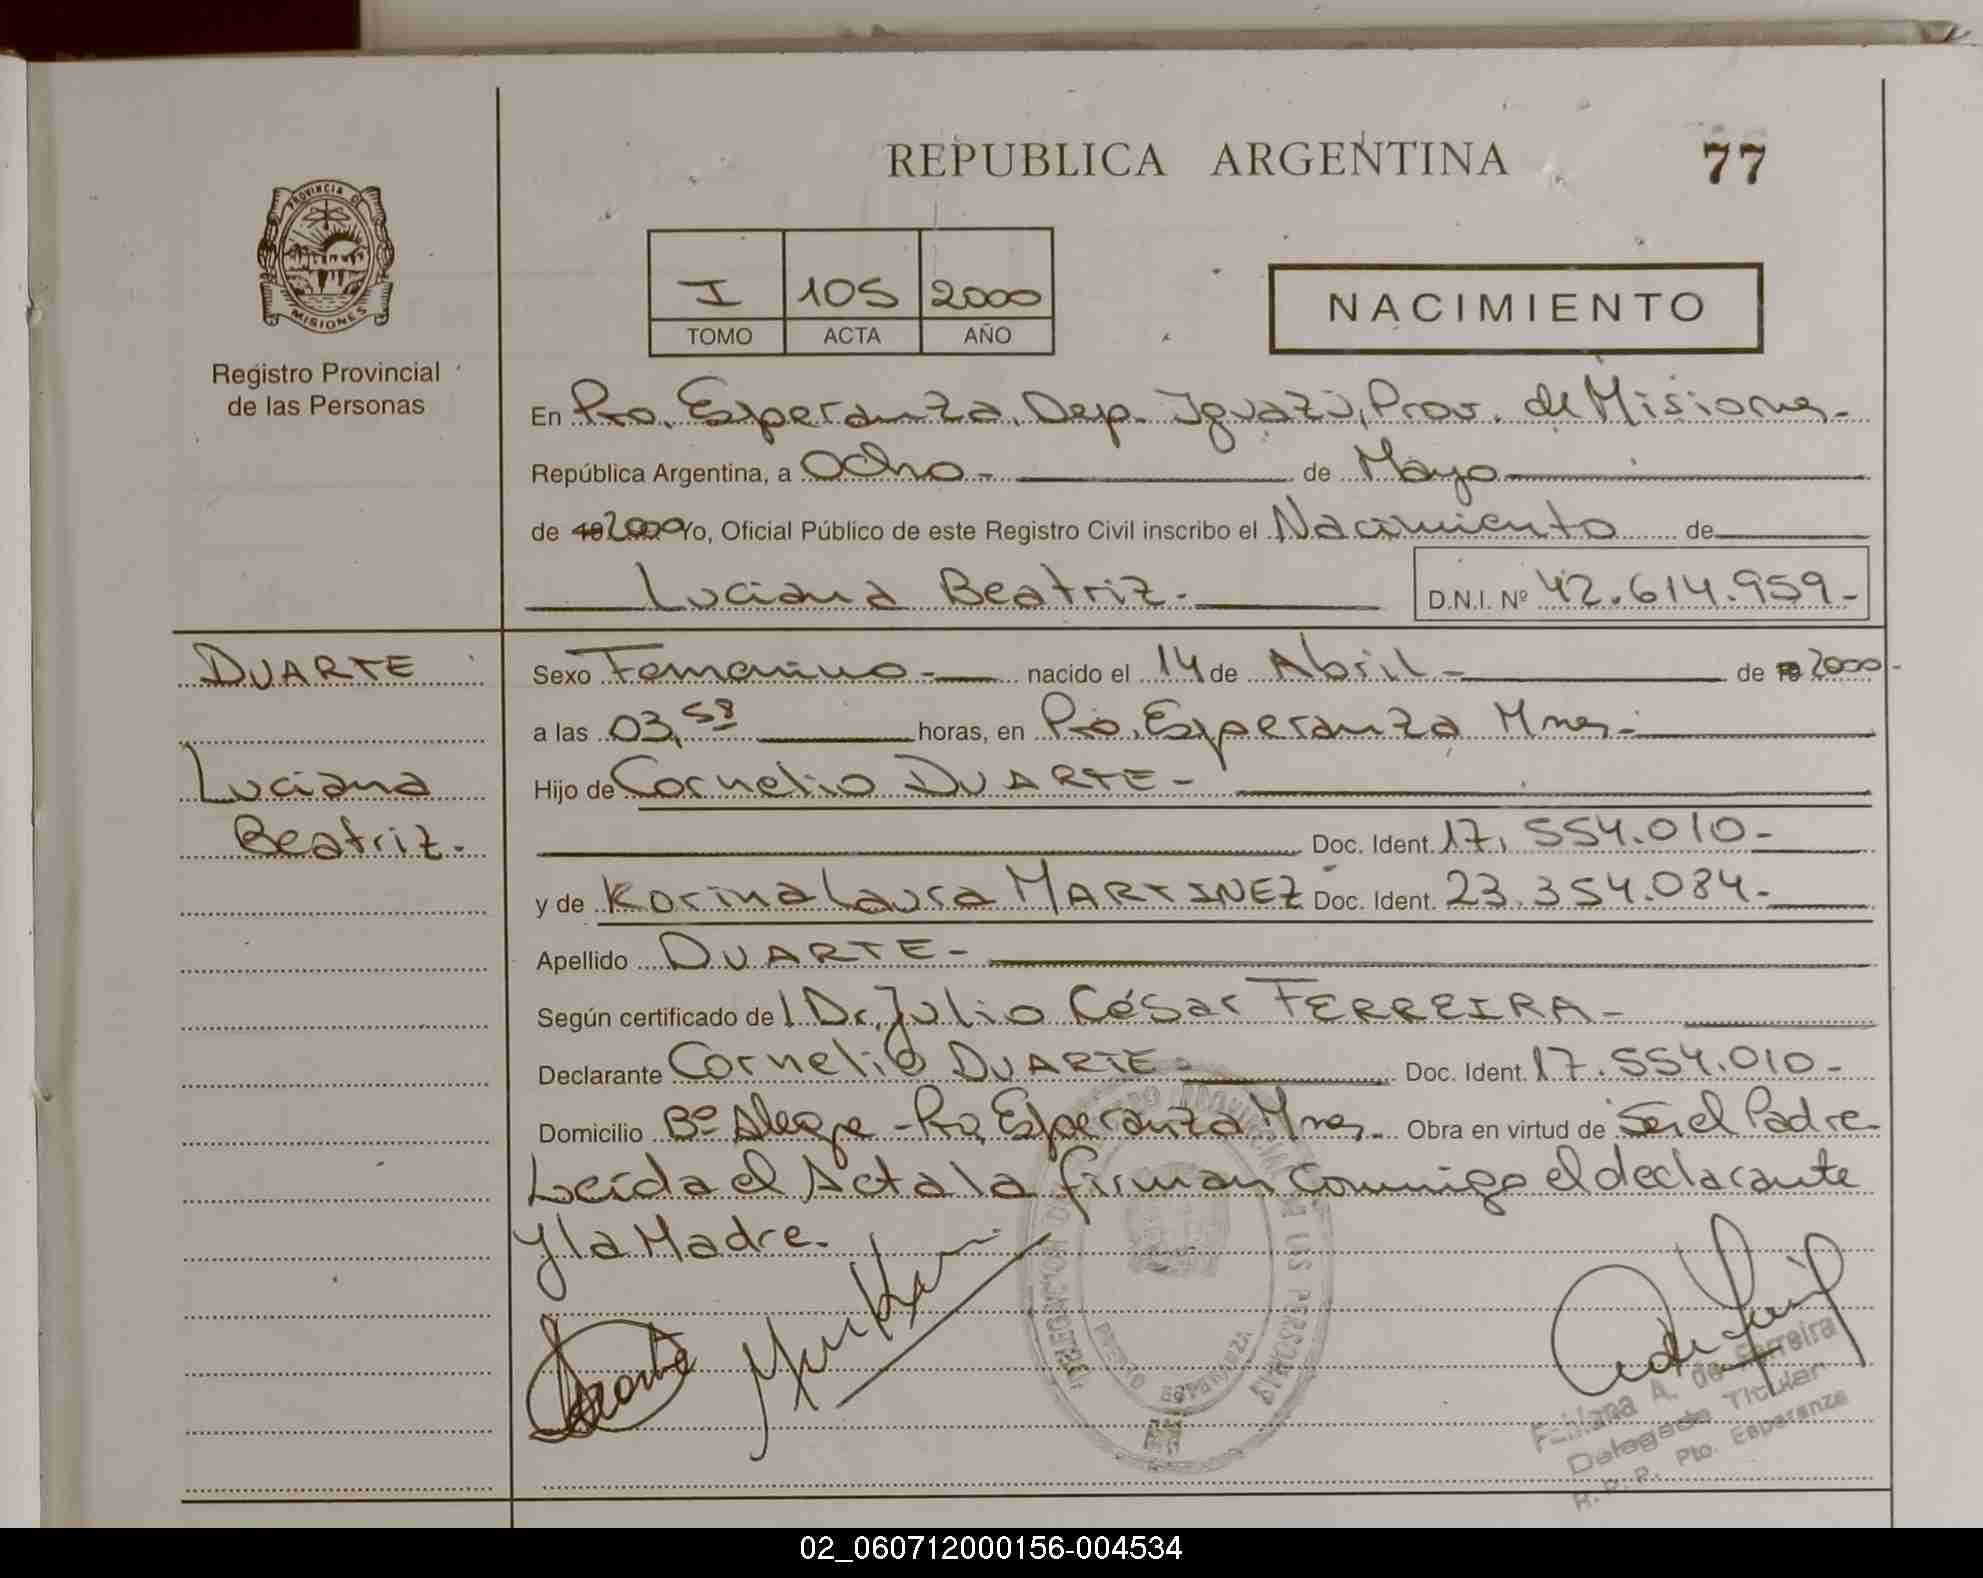 REPUBLICA ARGENTINA
77
PROVINCIA DE
MISIONES
Registro Provincial
de las Personas
I 105 2000
TOMO ACTA AÑO
NACIMIENTO
En Pto. Esperanza, Dep. Iguazú, Prov. de Misiones-
República Argentina, a Ocho- de Mayo
de 19 2000 Yo, Oficial Público de este Registro Civil inscribo el Nacimiento de
Luciana Beatriz.- D.N.I. Nº 42.614.959-
DUARTE
Luciana
Beatriz.
Sexo Femenino- nacido el 14 de Abril- de 19 2000-
a las 03,58 horas, en Pto. Esperanza Mnes-
Hijo de Cornelio DUARTE-
Doc. Ident. 17.554.010-
y de Korina Laura MARTINEZ Doc. Ident. 23.354.084-
Apellido DUARTE-
Según certificado del Dr. Julio César FERREIRA-
Declarante Cornelio DUARTE- Doc. Ident. 17.554.010-
Domicilio Bº Alegre - Pto. Esperanza Mnes- Obra en virtud de Ser el Padre
Leída el Acta la firman conmigo el declarante
y la Madre.
DELEGACION DEL REGISTRO PROVINCIAL DE LAS PERSONAS
PUERTO ESPERANZA
A. de Ferreira
Delegada Titular
R.P.P. Pto. Esperanza
02_060712000156-004534